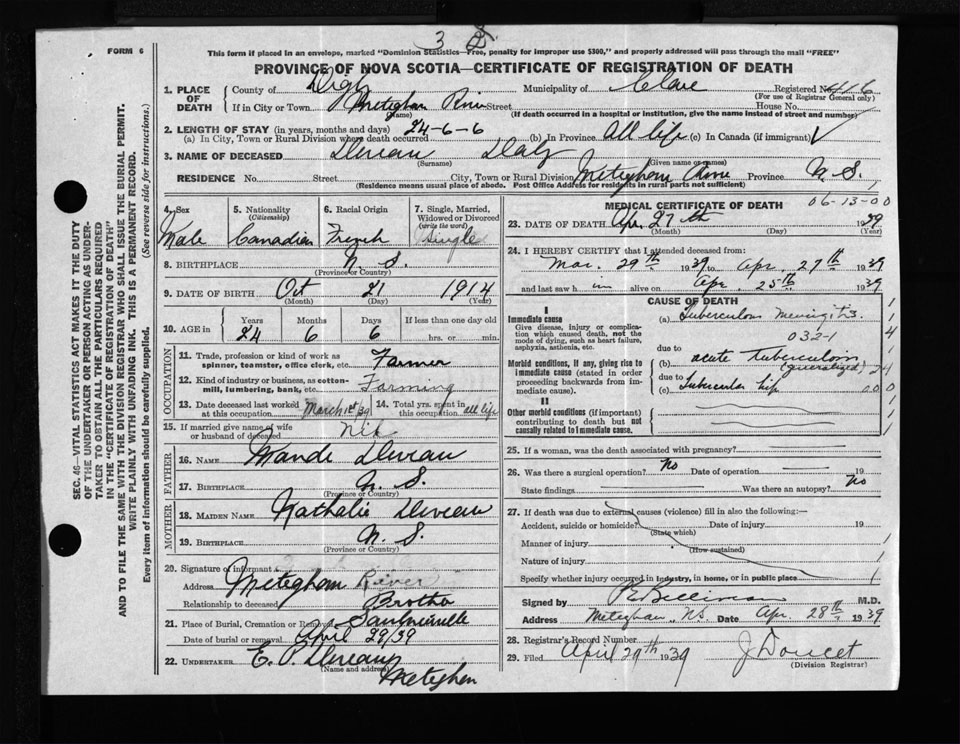 3
FORM 6
This form if placed in an envelope, marked "Dominion Statistics—Free, penalty for improper use $300," and properly addressed will pass through the mail "FREE"
PROVINCE OF NOVA SCOTIA—CERTIFICATE OF REGISTRATION OF DEATH
1. PLACE OF DEATH { County of Digby Municipality of Clare Registered No. 416
(For use of Registrar General only)
If in City or Town Meteghan River Street House No.
(Name) (If death occurred in a hospital or institution, give the name instead of street and number)
2. LENGTH OF STAY (in years, months and days) 24-6-6
(a) In City, Town or Rural Division where death occurred (b) In Province All life (c) In Canada (if immigrant)
3. NAME OF DECEASED Deveau
(Surname) (Given name or names)
RESIDENCE No. Street City, Town or Rural Division Meteghan River Province N.S.
(Residence means usual place of abode. Post Office Address for residents in rural parts not sufficient)
4. Sex Male
5. Nationality (Citizenship) Canadian
6. Racial Origin French
7. Single, Married, Widowed or Divorced (write the word) Single
8. BIRTHPLACE N. S.
(Province or Country)
9. DATE OF BIRTH Oct 21 1914
(Month) (Day) (Year)
10. AGE in { Years Months Days If less than one day old
24 6 6 hrs. or min.
OCCUPATION
11. Trade, profession or kind of work as spinner, teamster, office clerk, etc. Farmer
12. Kind of industry or business, as cotton-mill, lumbering, bank, etc. Farming
13. Date deceased last worked at this occupation March 1st 39
14. Total yrs. spent in this occupation all life
15. If married give name of wife or husband of deceased Nil
FATHER
16. NAME Deveau
17. BIRTHPLACE N. S.
(Province or Country)
MOTHER
18. MAIDEN NAME Nathalie Deveau
19. BIRTHPLACE N. S.
(Province or Country)
20. Signature of informant
Address Meteghan River
Relationship to deceased Brother
21. Place of Burial, Cremation or Removal Saulnierville
Date of burial or removal April 29/39
22. UNDERTAKER E. P. Deveau
(Name and address)
Meteghan
MEDICAL CERTIFICATE OF DEATH 06-13-00
23. DATE OF DEATH Apr. 27th 1939
(Month) (Day) (Year)
24. I HEREBY CERTIFY that I attended deceased from:
Mar. 29th 1939 to Apr. 27th 1939
and last saw h im alive on Apr. 25th 1939
CAUSE OF DEATH
I
Immediate cause
Give disease, injury or complication which caused death, not the mode of dying, such as heart failure, asphyxia, asthenia, etc.
(a) Tuberculous Meningitis
032-1
due to
Morbid conditions, if any, giving rise to immediate cause (stated in order proceeding backwards from immediate cause).
(b) acute tuberculosis (generalized)
due to
(c) Tubercular hip
II
Other morbid conditions (if important) contributing to death but not causally related to immediate cause.
1
1
4
1
24
000
25. If a woman, was the death associated with pregnancy?
26. Was there a surgical operation? No Date of operation 19
State findings Was there an autopsy? No
27. If death was due to external causes (violence) fill in also the following:—
Accident, suicide or homicide? Date of injury 19
(State which)
Manner of injury
(How sustained)
Nature of injury
Specify whether injury occurred in industry, in home, or in public place
Signed by M.D.
Address Meteghan, N.S. Date Apr. 28th 1939
28. Registrar's Record Number
29. Filed April 29th 1939 J Doucet
(Division Registrar)
SEC. 46—VITAL STATISTICS ACT MAKES IT THE DUTY OF THE UNDERTAKER OR PERSON ACTING AS UNDERTAKER TO OBTAIN ALL THE PARTICULARS REQUIRED IN THE "CERTIFICATE OF REGISTRATION OF DEATH" AND TO FILE THE SAME WITH THE DIVISION REGISTRAR WHO SHALL ISSUE THE BURIAL PERMIT.
WRITE PLAINLY WITH UNFADING INK. THIS IS A PERMANENT RECORD.
Every item of information should be carefully supplied. (See reverse side for instructions.)